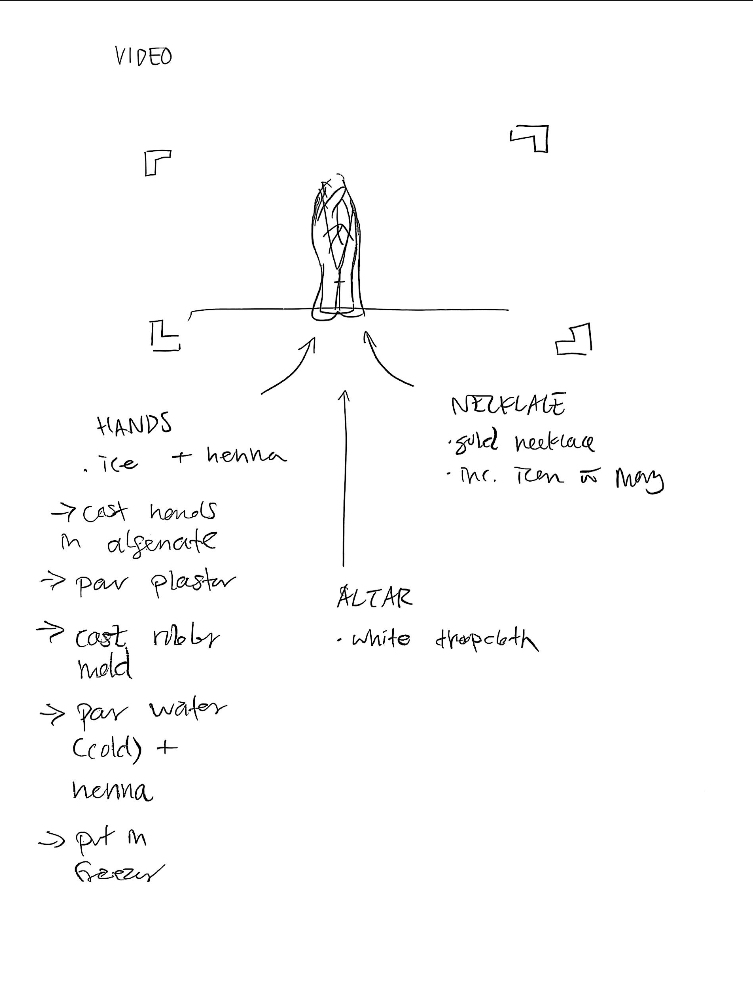 VIDEO
HANDS
. ice + henna
→ cast hands
in algenate
→ pour plaster
→ cast rubber
mold
→ pour water
(cold) +
henna
→ put in
freezer
NECKLACE
· gold necklace
· inc. icon Mary
ALTAR
· white dropcloth